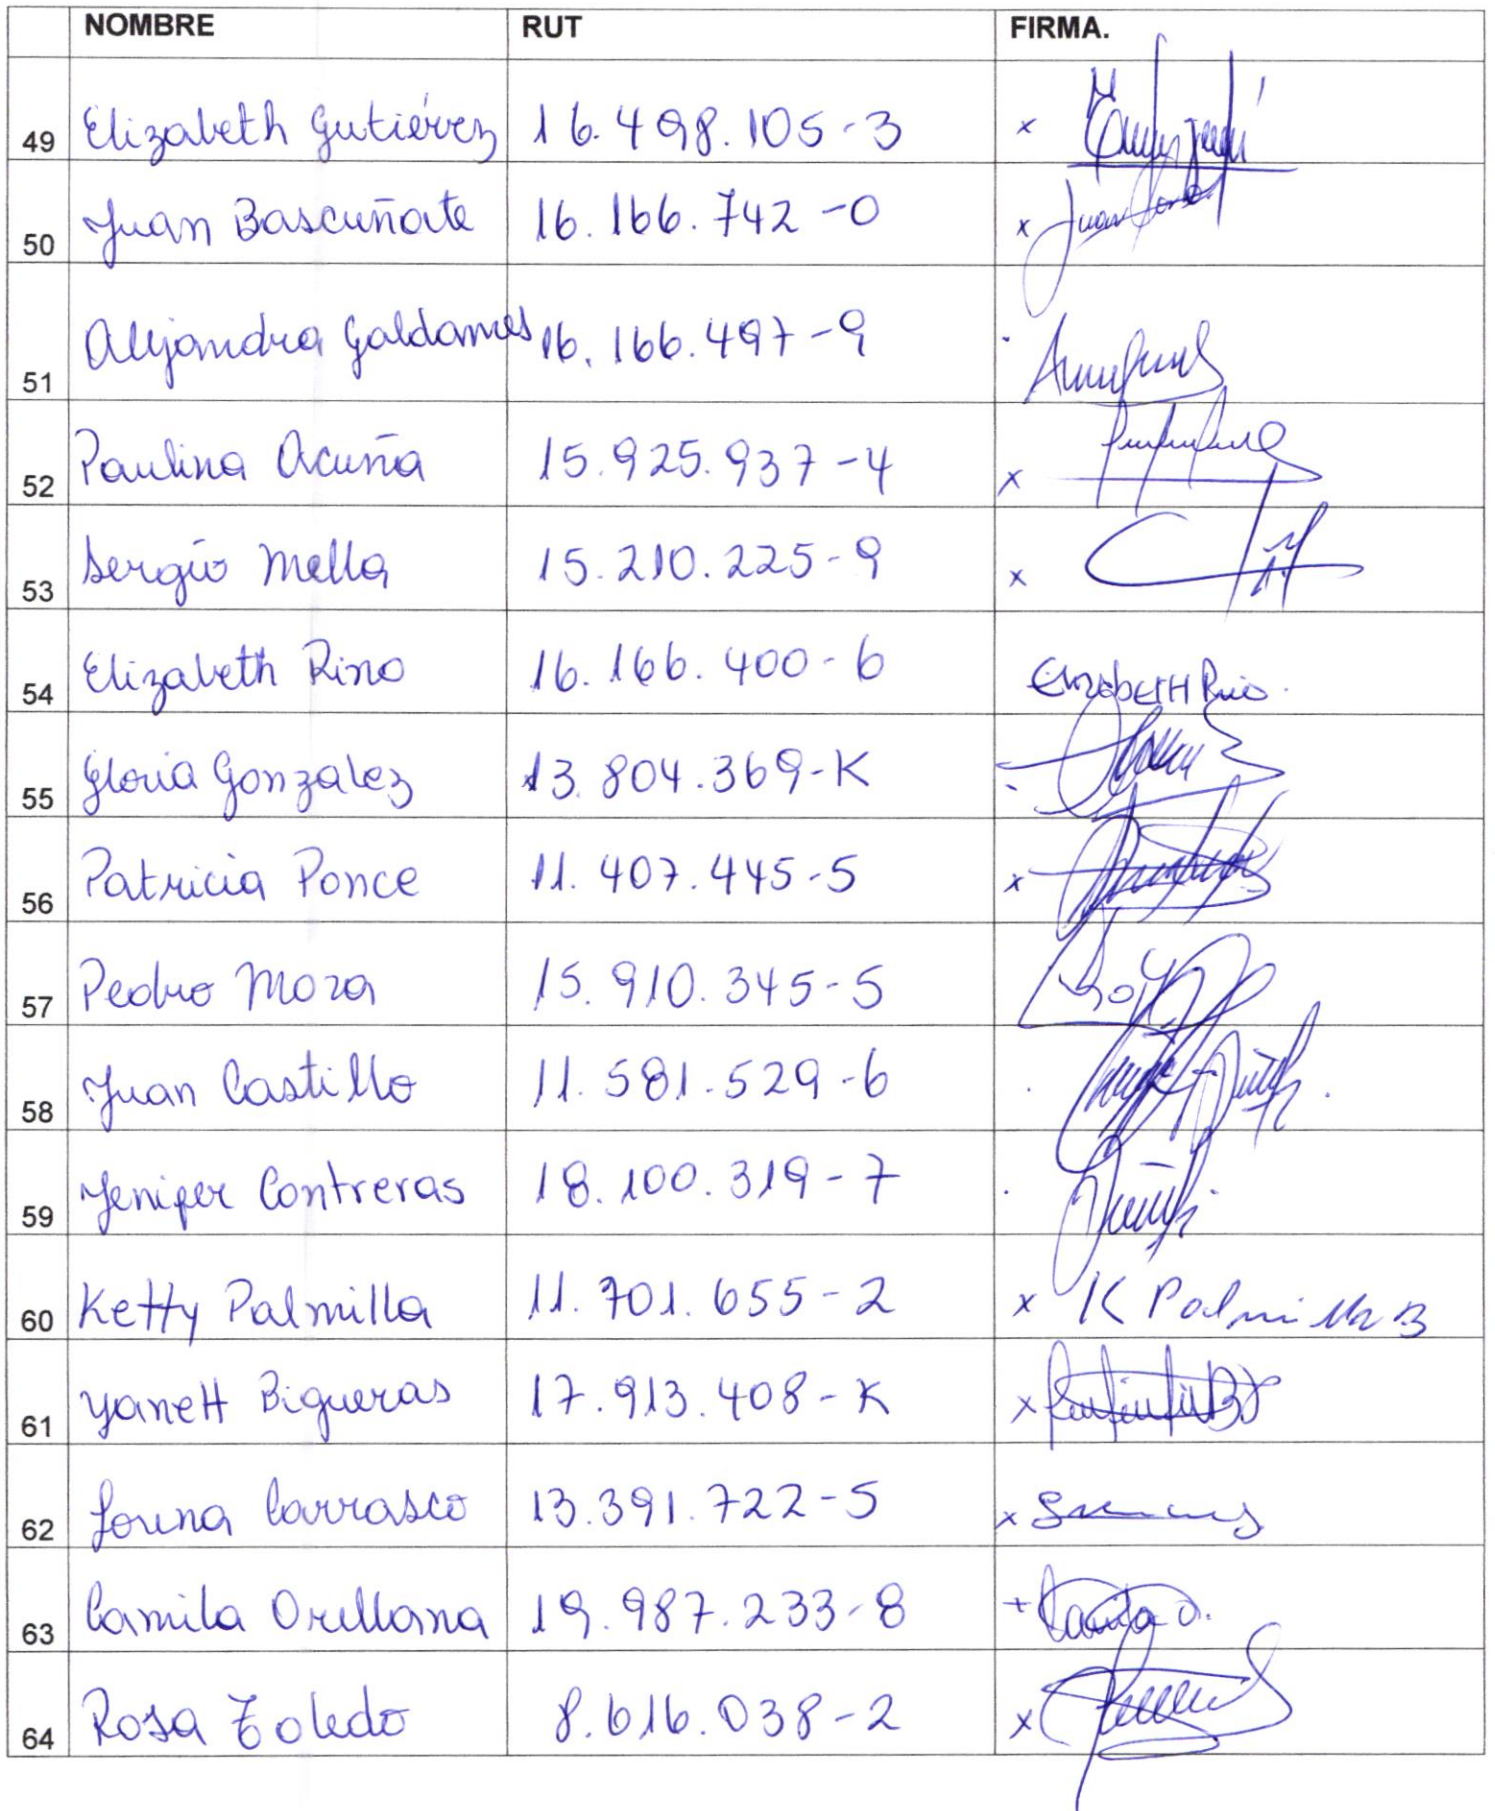 NOMBRE RUT FIRMA.
49 Elizabeth Gutiérrez 16.498.105-3 x
50 Juan Bascuñate 16.166.742-0 x Juan
51 Alejandra Galdames 16.166.497-9
52 Paulina Acuña 15.925.937-4 x
53 Sergio Mella 15.210.225-9 x
54 Elizabeth Rino 16.166.400-6 Elizabeth Rino.
55 Gloria Gonzalez 13.804.369-K
56 Patricia Ponce 11.407.445-5 x
57 Pedro Moza 15.910.345-5
58 Juan Castillo 11.581.529-6
59 Jeniper Contreras 18.100.319-7
60 Ketty Palmilla 11.701.655-2 x K Palmilla B
61 Yanett Bigueras 17.913.408-K x
62 Lorena Carrasco 13.391.722-5 x
63 Camila Orellana 19.987.233-8 + Camila O.
64 Rosa Toledo 8.616.038-2 x